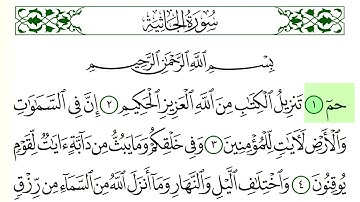 سُورَةُ الجَاثِيَةِ
بِسْمِ ٱللَّهِ ٱلرَّحْمَٰنِ ٱلرَّحِيمِ
حمٓ ١ تَنزِيلُ ٱلْكِتَٰبِ مِنَ ٱللَّهِ ٱلْعَزِيزِ ٱلْحَكِيمِ ٢ إِنَّ فِى ٱلسَّمَٰوَٰتِ
وَٱلْأَرْضِ لَءَايَٰتٍ لِّلْمُؤْمِنِينَ ٣ وَفِى خَلْقِكُمْ وَمَا يَبُثُّ مِن دَآبَّةٍ ءَايَٰتٌ لِّقَوْمٍ
يُوقِنُونَ ٤ وَٱخْتِلَٰفِ ٱلَّيْلِ وَٱلنَّهَارِ وَمَآ أَنزَلَ ٱللَّهُ مِنَ ٱلسَّمَآءِ مِن رِّزْقٍ